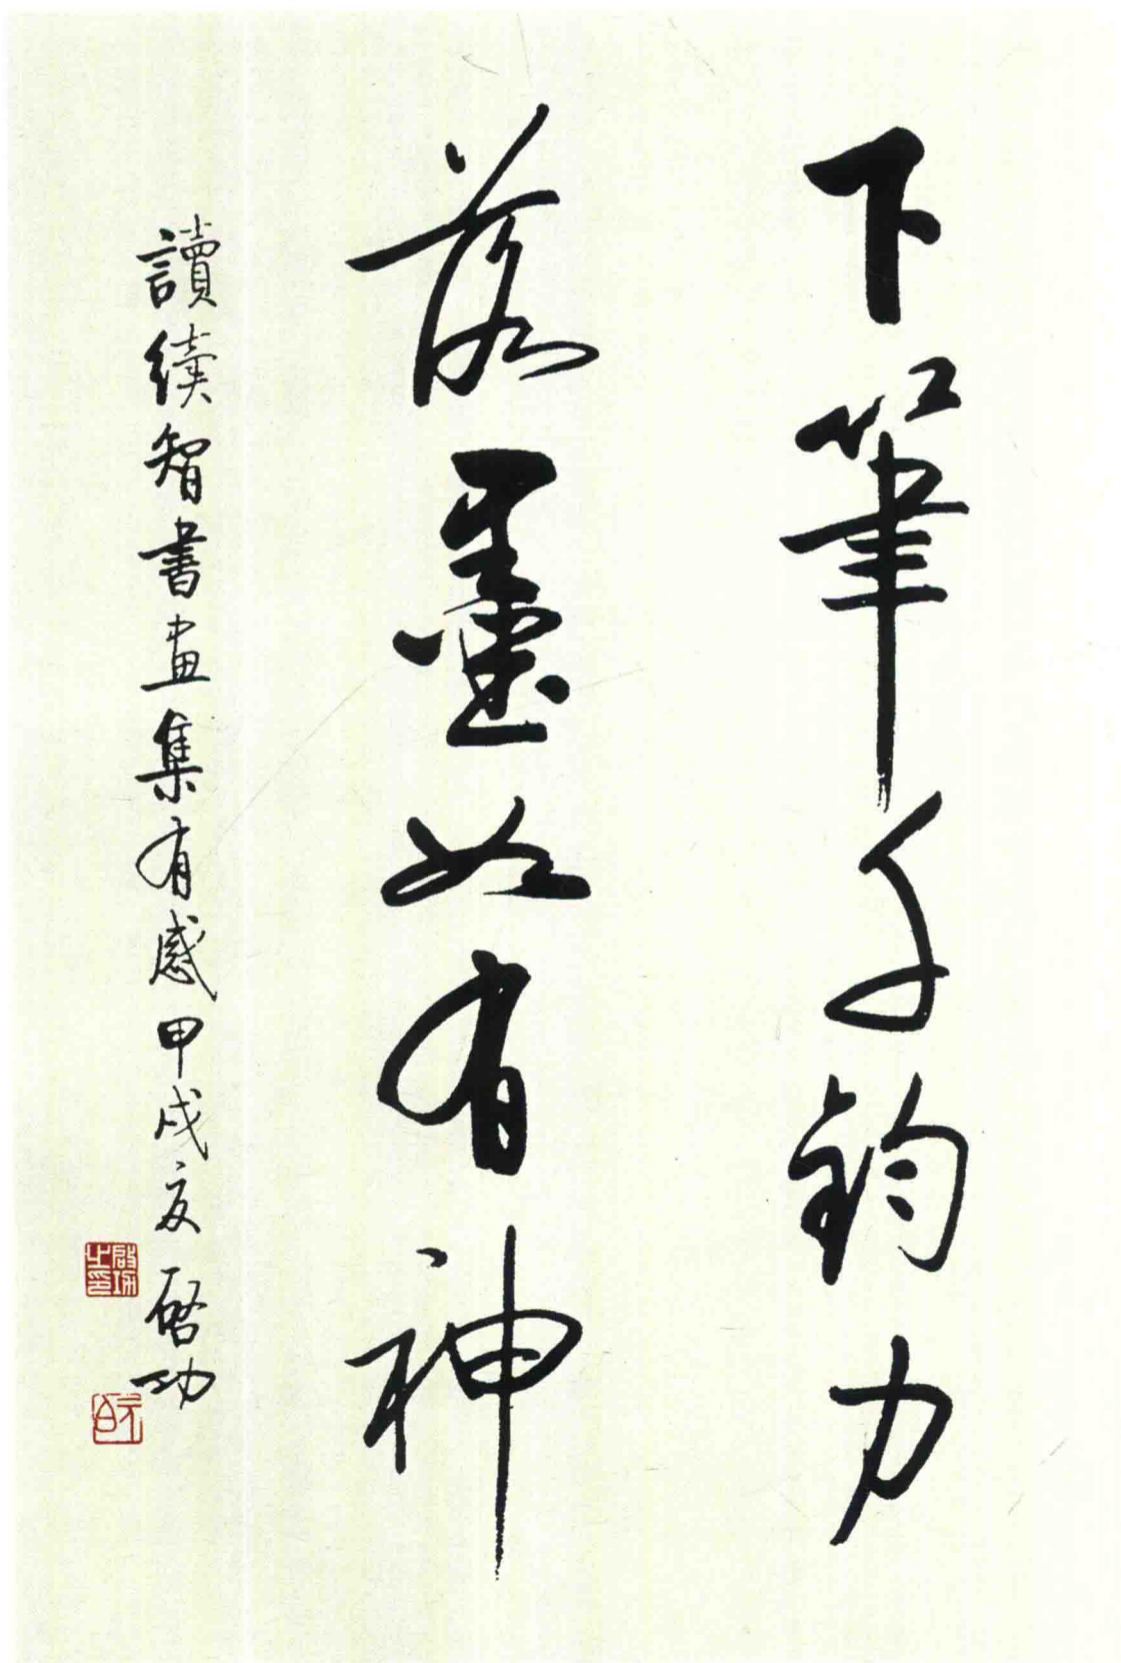 下筆千鈞力
落墨如有神
讀續智書畫集有感甲戌夏啓功
啟功之印
元白